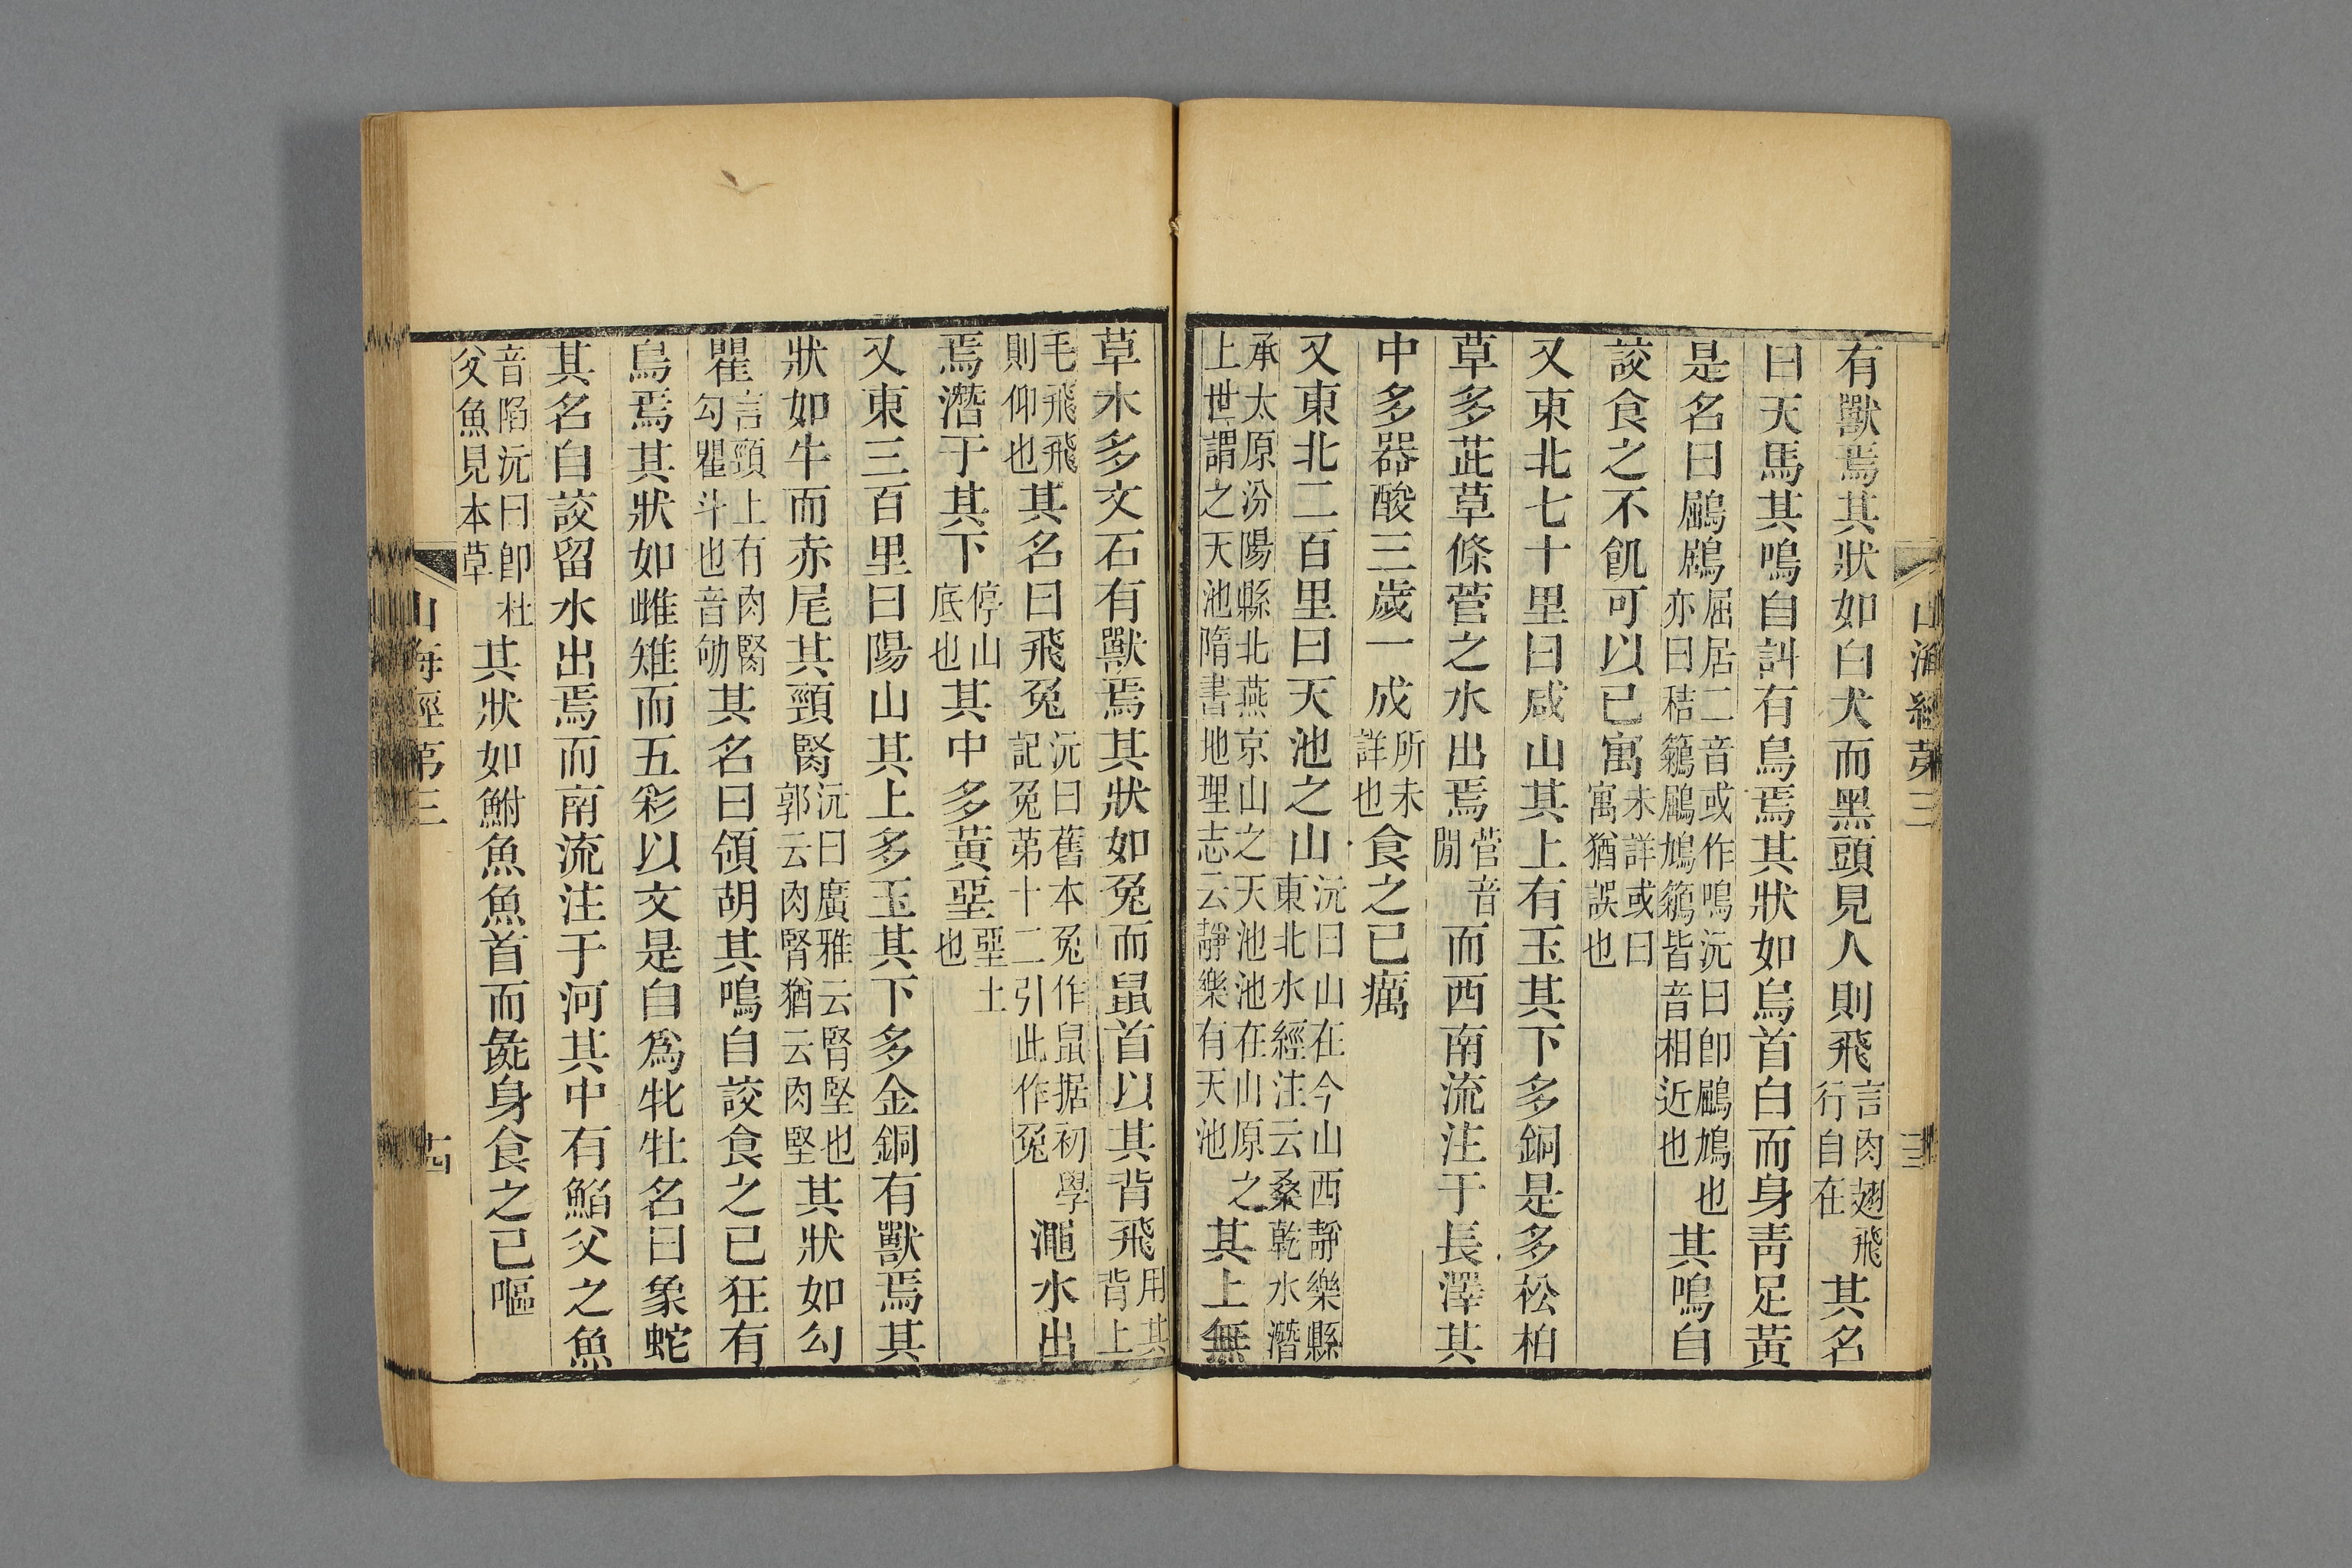 山海經第三
有獸焉其狀如白犬而黑頭見人則飛言肉翅飛行自在其名
曰天馬其鳴自訆有鳥焉其狀如烏首白而身靑足黃
是名曰鶌鶋屈居二音或作鳴沅曰卽鶌鳩也亦曰秸鵴鶌鳩鵴皆音相近也其鳴自
詨食之不飢可以已寓未詳或曰寓猶誤也
又東北七十里曰咸山其上有玉其下多銅是多松柏
草多茈草條菅之水出焉菅音閒而西南流注于長澤其
中多器酸三歲一成所未詳也食之已癘
又東北二百里曰天池之山沅曰山在今山西靜樂縣東北水經注云桑乾水潛
承太原汾陽縣北燕京山之天池池在山原之上世謂之天池隋書地理志云靜樂有天池其上無
草木多文石有獸焉其狀如兔而鼠首以其背飛用其背上
毛飛飛則仰也其名曰飛兔沅曰舊本兔作鼠据初學記兔第十二引此作兔澠水出
焉潛于其下停山底也其中多黃堊堊土也
又東三百里曰陽山其上多玉其下多金銅有獸焉其
狀如牛而赤尾其頸䐜沅曰廣雅云腎堅也郭云肉腎猶云肉堅其狀如勾
瞿言頸上有肉䐜勾瞿斗也音劬其名曰領胡其鳴自詨食之已狂有
鳥焉其狀如雌雉而五彩以文是自爲牝牡名曰象蛇
其名自詨留水出焉而南流注于河其中有鮥父之魚
音陷沅曰卽杜父魚見本草其狀如鮒魚魚首而彘身食之已嘔
山海經第三